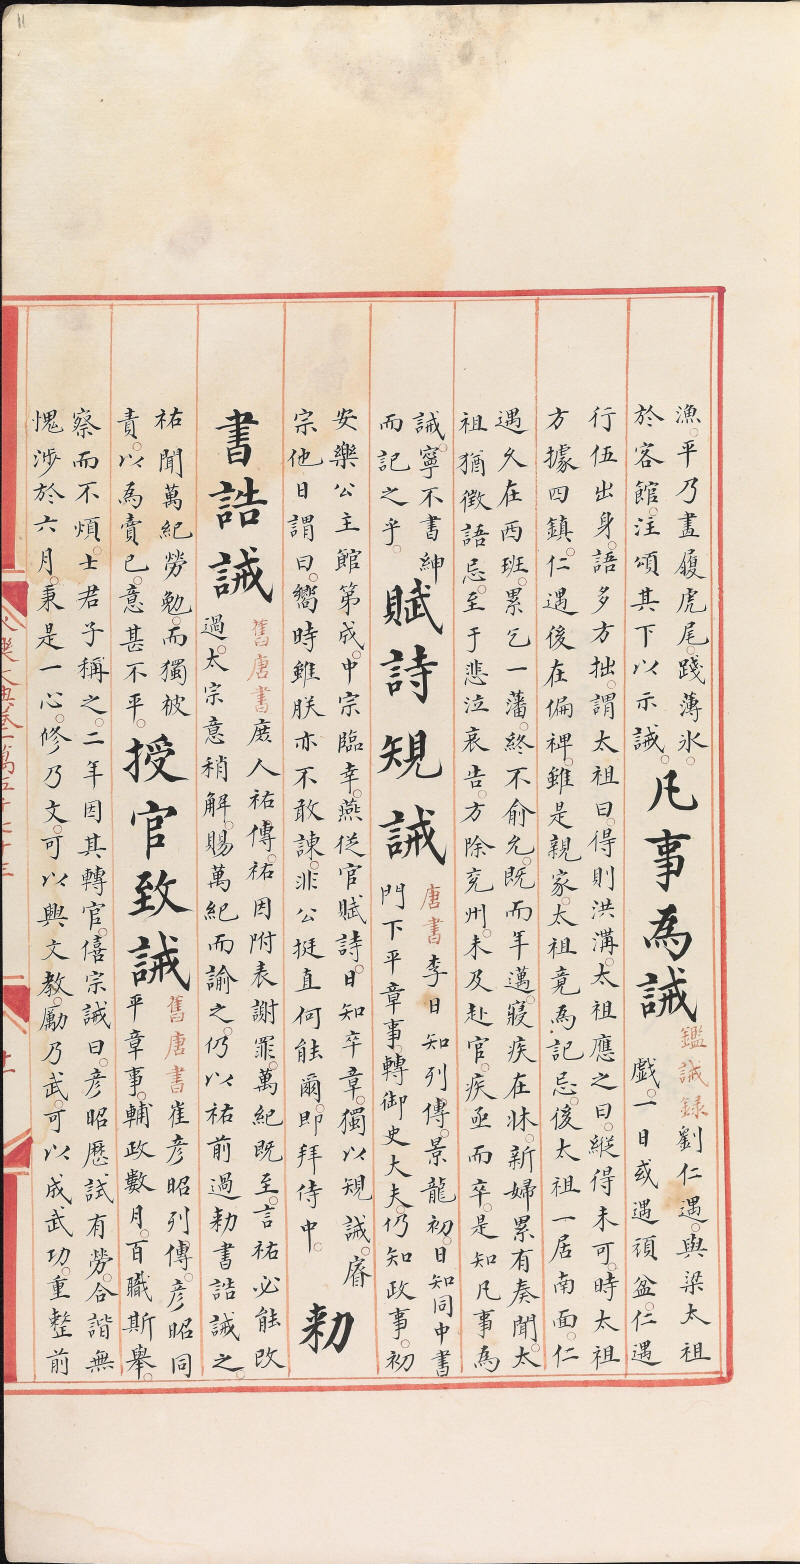 漁。平乃畫履虎尾。踐薄氷。
於客館。注頌其下以示誡。
凡事為誡
鑑誡録劉仁遇。與梁太祖
戲。一日或遇頑盆。仁遇
行伍出身。語多方拙。謂太祖曰。得則洪溝。太祖應之曰。縱得未可。時太祖
方據四鎮。仁遇後在偏裨。雖是親家。太祖竟為記忌。後太祖一居南面。仁
遇久在西班。累乞一藩。終不俞允。既而年邁。寢疾在牀。新婦累有奏聞。太
祖猶徵語忌。至于悲泣哀告。方除兖州。未及赴官。疾亟而卒。是知凡事為
誡。寧不書紳
而記之乎。
賦詩規誡
唐書李日知列傳。景龍初。日知同中書
門下平章事。轉御史大夫。仍知政事。初
安樂公主館第成。中宗臨幸。燕從官賦詩。日知卒章。獨以規誡。睿
宗他日謂曰。嚮時雖朕亦不敢諫。非公挺直何能爾。即拜侍中。
勑
書誥誡
舊唐書庶人祐傳。祐因附表謝罪。萬紀既至。言祐必能改
過。太宗意稍解。賜萬紀而諭之。仍以祐前過勑書誥誡之。
祐聞萬紀勞勉。而獨被
責。以為賣已。意甚不平。
授官致誡
舊唐書崔彦昭列傳。彦昭同
平章事。輔政數月。百職斯舉。
察而不煩。士君子稱之。二年因其轉官。僖宗誡曰。彦昭歷試有勞。合諧無
愧。涉於六月。秉是一心。修乃文。可以興文教。勵乃武。可以成武功。重整前
永樂大典卷二萬五千七十三
十一
11